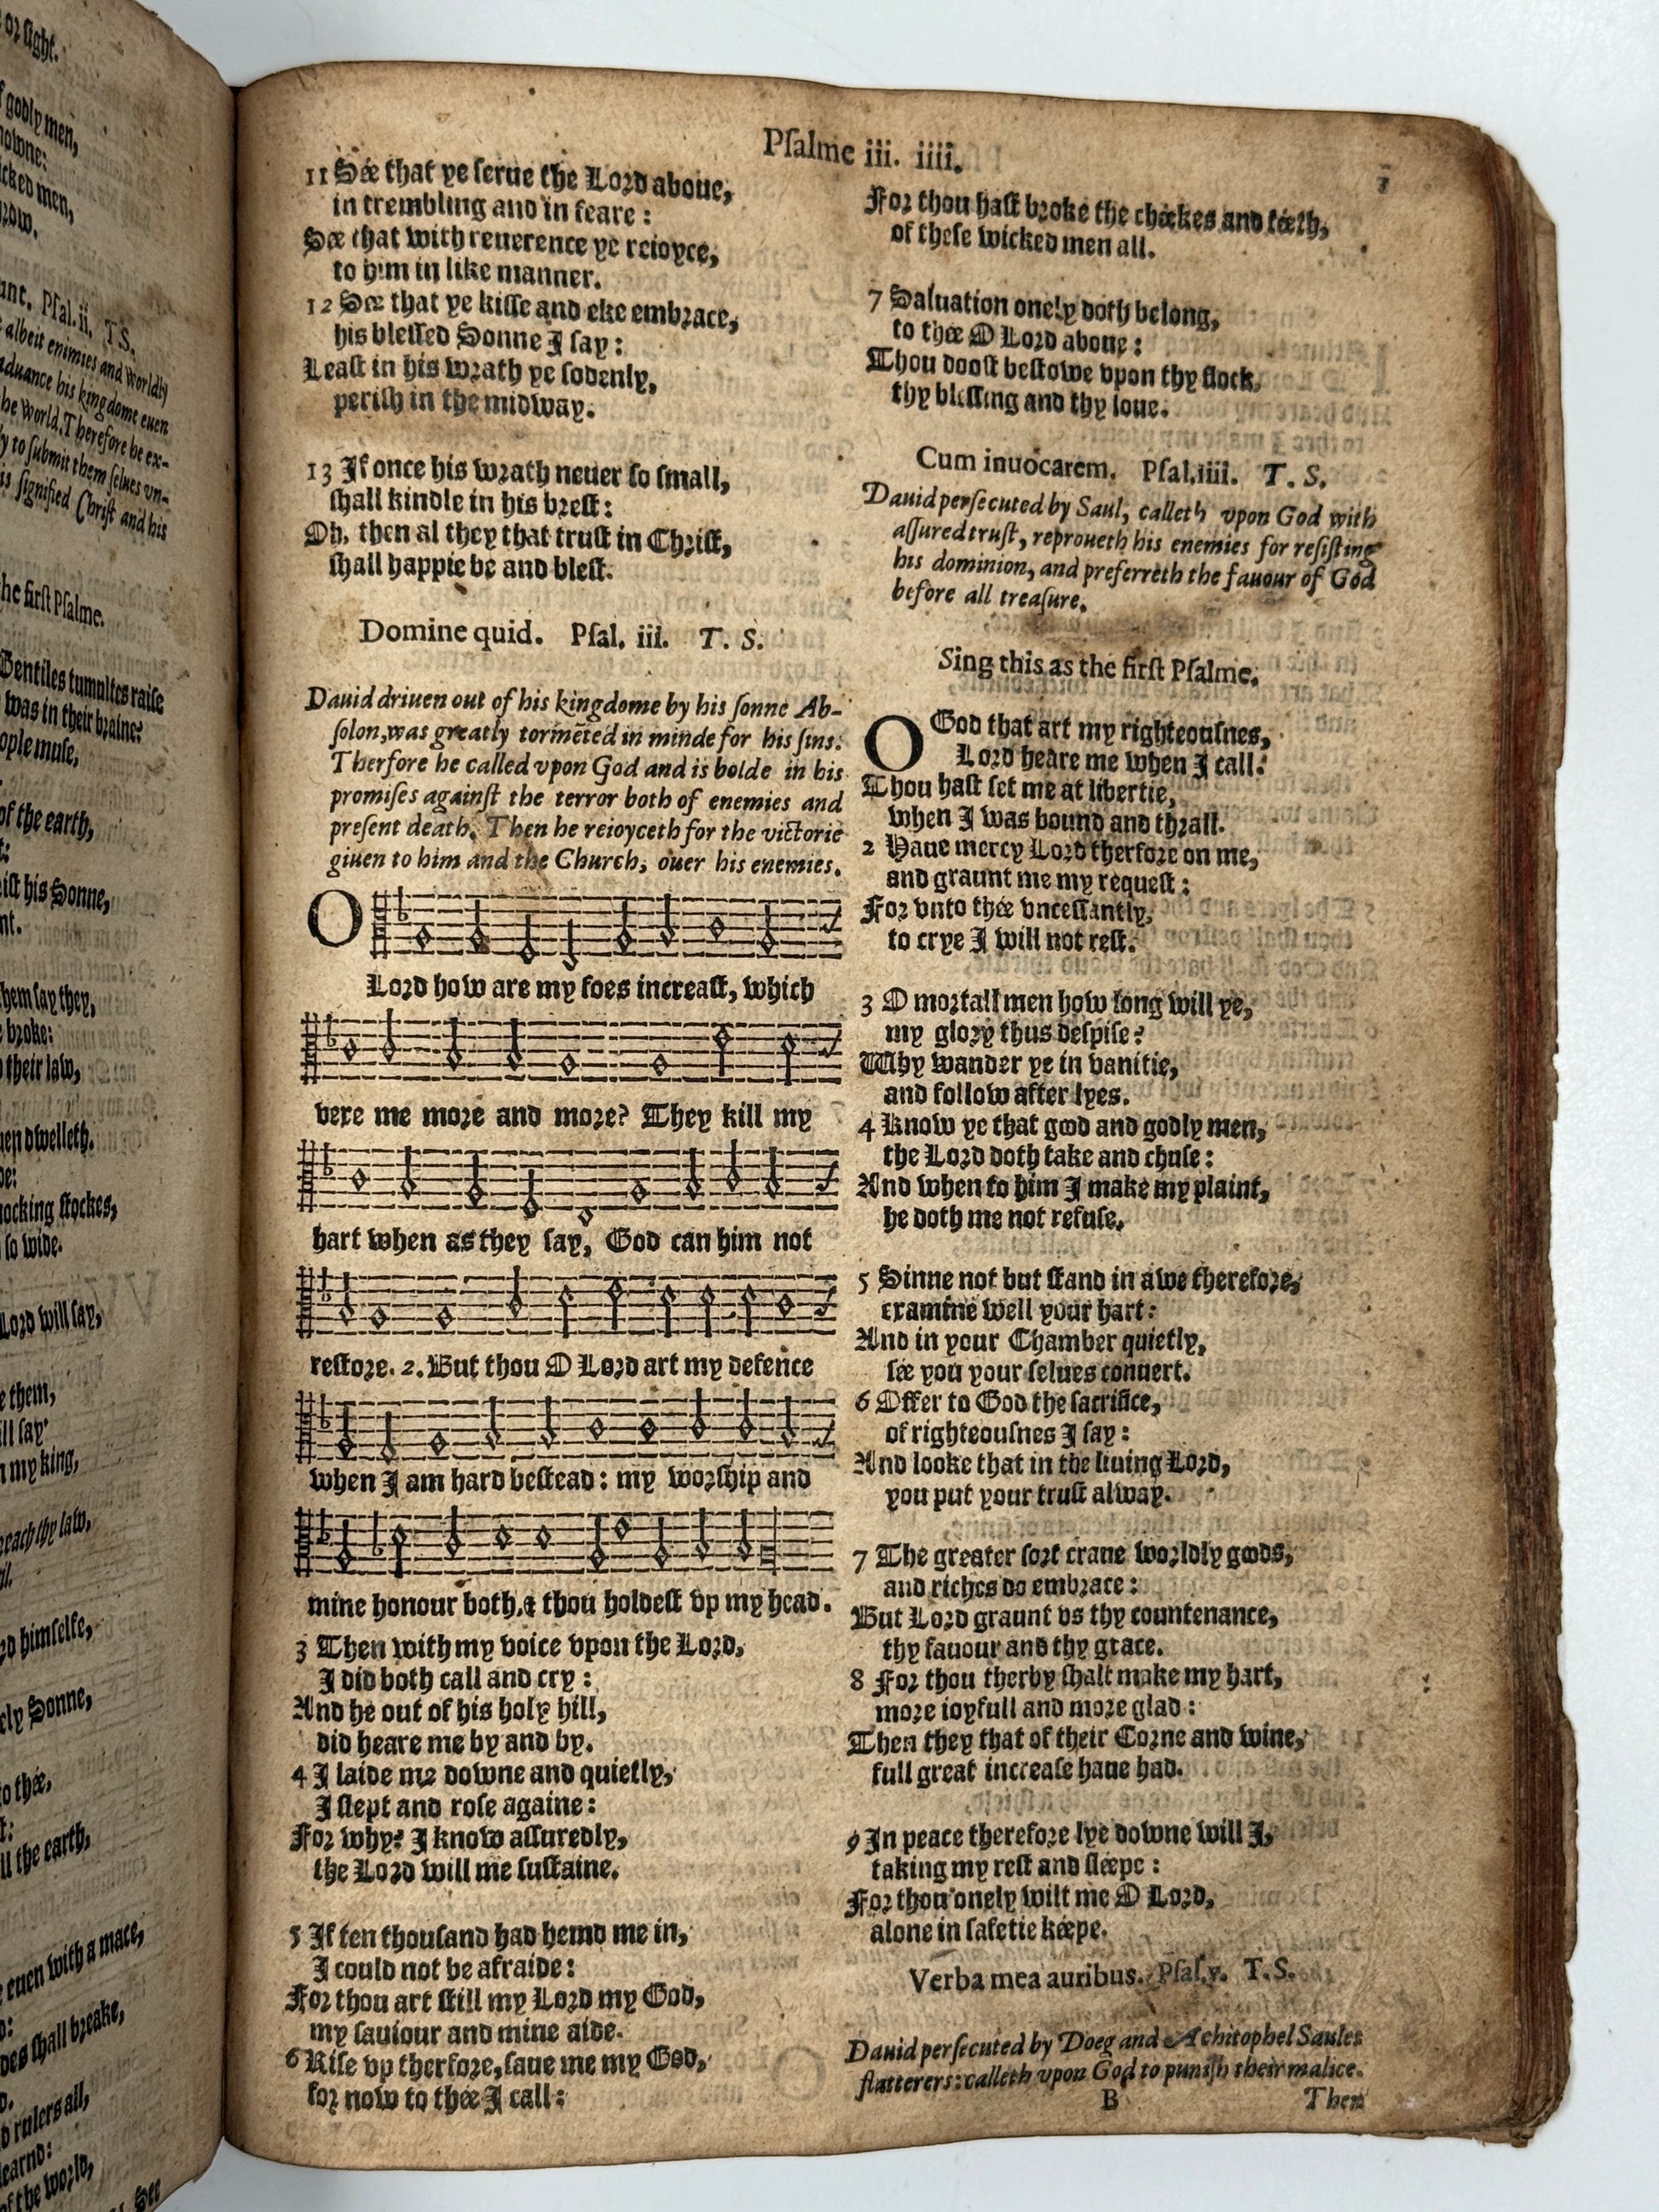 or sight.
godly men,
nowne:
icked men,
row.
Psal. ii. T. S.
albeit enimies and worldly
aduance his kingdome euen
the world. Therefore he ex-
to submit them selues vn-
is signified Christ and his
the first Psalme.
Gentiles tumultes raise
was in their braine?
people muse,
of the earth,
his Sonne,
them say they,
broke:
their law,
dwelleth.
mocking stockes,
so wide.
Lord will say,
them,
ill say
my king,
preach thy law,
himselfe,
Sonne,
to thée,
all the earth,
euen with a mace,
shall breake,
rulers all,
learnd:
of the world,
See
Psalme iii. iiii.
11 Sée that ye serue the Lord aboue,
in trembling and in feare:
Sée that with reuerence ye reioyce,
to him in like manner.
12 Sée that ye kisse and eke embrace,
his blessed Sonne I say:
Least in his wrath ye sodenly,
perish in the midway.
13 If once his wrath neuer so small,
shall kindle in his brest:
Oh, then al they that trust in Christ,
shall happie be and blest.
Domine quid. Psal. iii. T. S.
Dauid driuen out of his kingdome by his sonne Ab-
solon, was greatly tormēted in minde for his sins:
Therfore he called vpon God and is bolde in his
promises against the terror both of enemies and
present death. Then he reioyceth for the victorie
giuen to him and the Church, ouer his enemies.
O
Lord how are my foes increast, which
vexe me more and more? They kill my
hart when as they say, God can him not
restore. 2. But thou O Lord art my defence
when I am hard bestead: my worship and
mine honour both, & thou holdest vp my head.
3 Then with my voice vpon the Lord,
I did both call and cry:
And he out of his holy hill,
did heare me by and by.
4 I laide me downe and quietly,
I slept and rose againe:
For why? I know assuredly,
the Lord will me sustaine.
5 If ten thousand had hemd me in,
I could not be afraide:
For thou art still my Lord my God,
my sauiour and mine aide.
6 Rise vp therfore, saue me my God,
for now to thée I call:
For thou hast broke the chéekes and téeth,
of these wicked men all.
7 Saluation onely doth belong,
to thée O Lord aboue:
Thou doost bestowe vpon thy flock,
thy blessing and thy loue.
Cum inuocarem. Psal. iiii. T. S.
Dauid persecuted by Saul, calleth vpon God with
assured trust, reproueth his enemies for resisting
his dominion, and preferreth the fauour of God
before all treasure.
Sing this as the first Psalme.
O God that art my righteousnes,
Lord heare me when I call:
Thou hast set me at libertie,
when I was bound and thrall.
2 Haue mercy Lord therfore on me,
and graunt me my request:
For vnto thée vncessantly,
to crye I will not rest.
3 O mortall men how long will ye,
my glory thus despise?
Why wander ye in vanitie,
and follow after lyes.
4 Know ye that good and godly men,
the Lord doth take and chuse:
And when to him I make my plaint,
he doth me not refuse.
5 Sinne not but stand in awe therefore,
examine well your hart:
And in your Chamber quietly,
sée you your selues conuert.
6 Offer to God the sacrifice,
of righteousnes I say:
And looke that in the liuing Lord,
you put your trust alway.
7 The greater sort craue worldly goods,
and riches do embrace:
But Lord graunt vs thy countenance,
thy fauour and thy grace.
8 For thou therby shalt make my hart,
more ioyfull and more glad:
Then they that of their Corne and wine,
full great increase haue had.
9 In peace therefore lye downe will I,
taking my rest and sléepe:
For thou onely wilt me O Lord,
alone in safetie kéepe.
Verba mea auribus. Psal. v. T. S.
Dauid persecuted by Doeg and Achitophel Saules
flatterers: calleth vpon God to punish their malice.
B Then